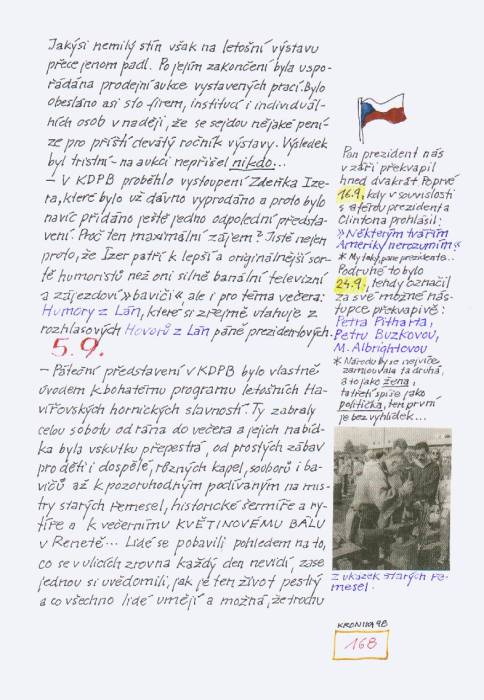 Jakýsi nemilý stín však na letošní výstavu
přece jenom padl. Po jejím zakončení byla uspo-
řádána prodejní aukce vystavených prací. Bylo
obesláno asi sto firem, institucí i individuál-
ních osob v naději, že se sejdou nějaké pení-
ze pro příští devátý ročník výstavy. Výsledek
byl tristní - na aukci nepřišel nikdo...
- V KDPB proběhlo vystoupení Zdeňka Ize-
ra, které bylo už dávno vyprodáno a proto bylo
navíc přidáno ještě jedno odpolední předsta-
vení. Proč ten maximální zájem? Jistě nejen
proto, že Izer patří k lepší a originálnější sor-
tě humoristů než oni silně banální televizní
a zájezdoví »baviči« ale i pro téma večera:
Humory z Lán, které si zřejmě utahuje z
rozhlasových Hovorů z Lán páně prezidentových.
5.9.
- Páteční představení v KDPB bylo vlastně
úvodem k bohatému programu letošních Ha-
vířovských hornických slavností. Ty zabraly
celou sobotu od rána do večera a jejich nabíd-
ka byla vskutku přepestrá, od prostých zábav
pro děti i dospělé, různých kapel, souborů i ba-
vičů až k pozoruhodným podívaným na mis-
try starých řemesel, historické šermíře a ry-
tíře a k večernímu KVĚTINOVÉMU BÁLU
v Renetě... Lidé se pobavili pohledem na to,
co se v ulicích zrovna každý den nevidí, zase
jednou si uvědomili, jak je ten život pestrý
a co všechno lidé umějí a možná, že trochu
Pan prezident nás
v září překvapil
hned dvakrát. Poprvé
16.9., kdy v souvislosti
s aférou prezidenta
Clintona prohlásil:
»Některým tvářím
Ameriky nerozumím«
* My taky, pane prezidente...
Podruhé to bylo
24.9., tehdy označil
za své možné nás-
tupce překvapivě:
Petra Pitharta,
Petru Buzkovou,
M. Albrightovou
* Národu by se nejvíce
zamlouvala ta druhá,
a to jako žena,
ta třetí spíše jako
politička, ten první
je bez vyhlídek...
Z ukázek starých ře-
mesel.
KRONIKA 98
168